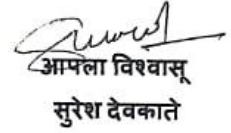 आपला विश्वासू
सुरेश देवकाते